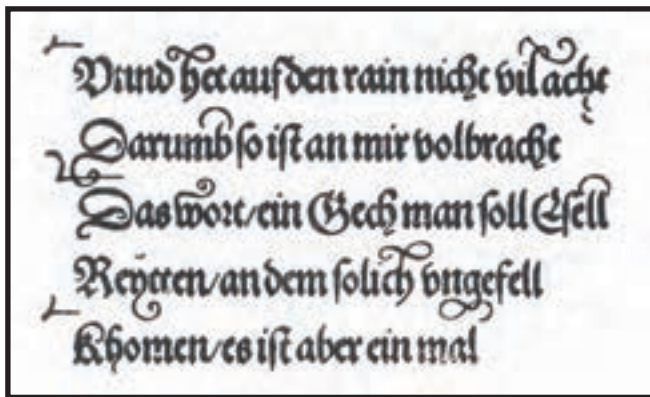 Vnnd het auf den rain nicht vil acht
Darumb so ist an mir volbracht
Das wort/ein Gech man soll Esell
Reyten/an dem solich vngefell
Khomen/es ist aber ein mal